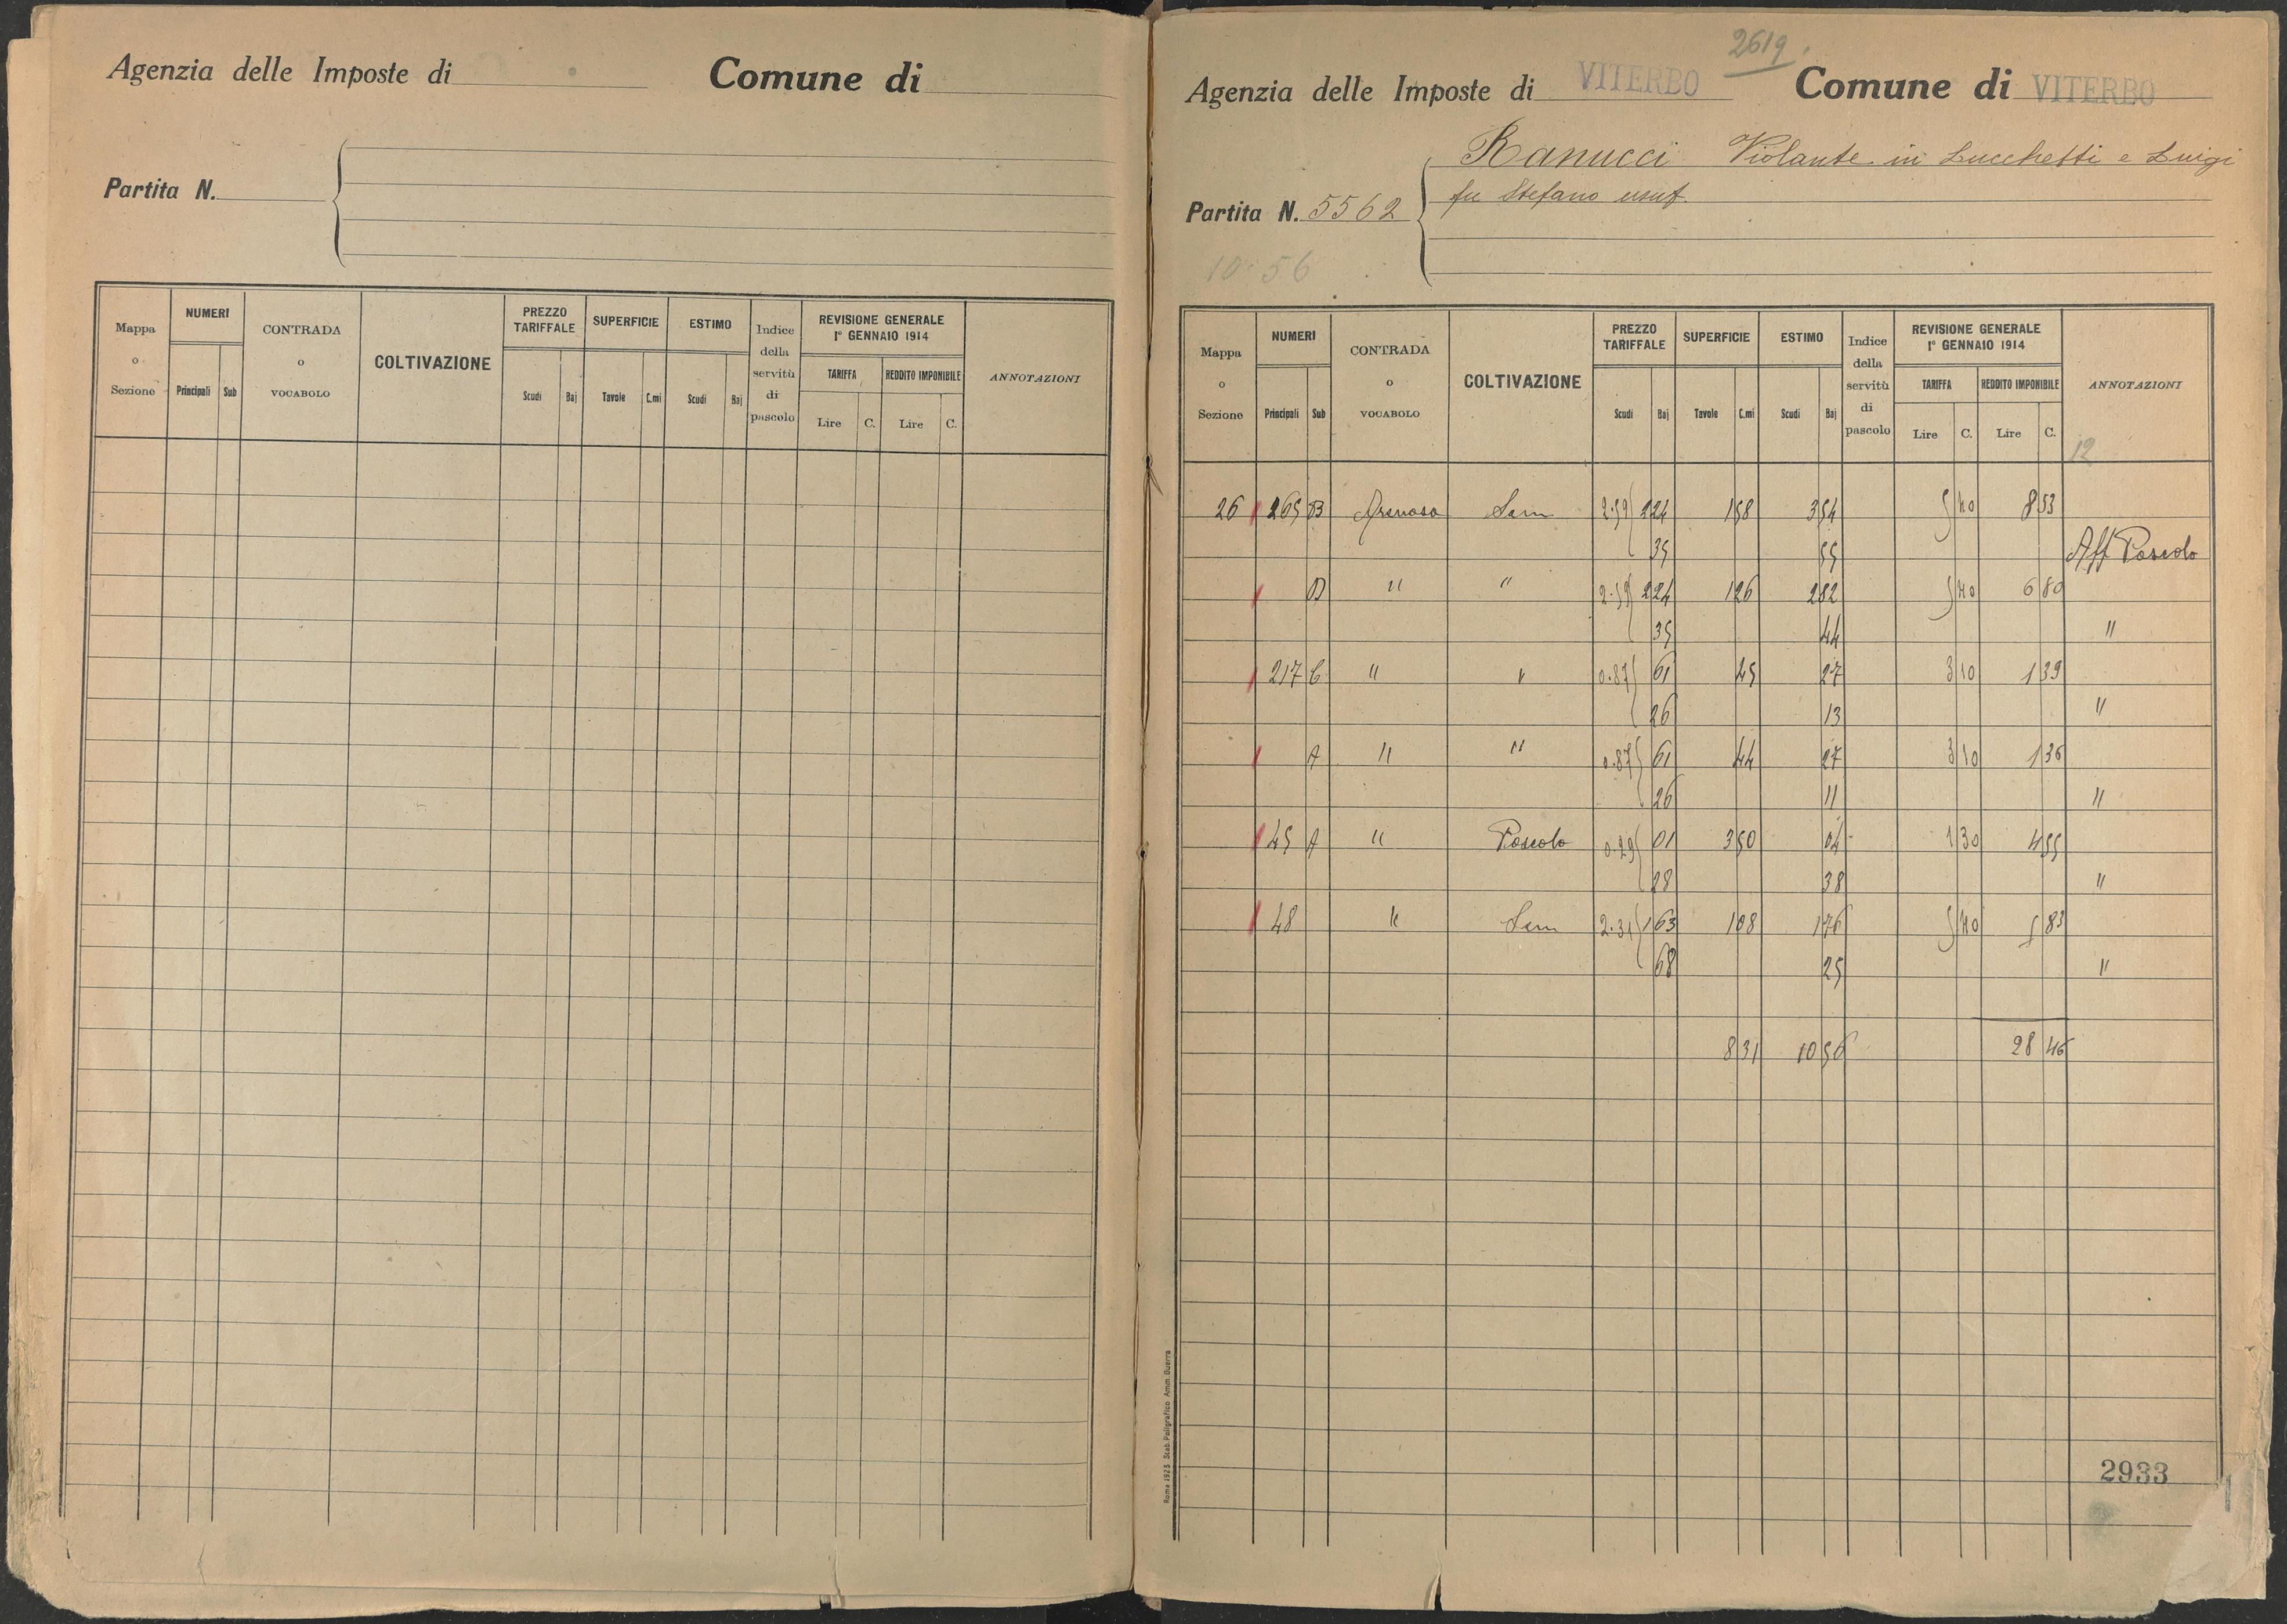 Agenzia delle Imposte di Comune di
Partita N.
Mappa o Sezione NUMERI Principali Sub CONTRADA o VOCABOLO COLTIVAZIONE PREZZO TARIFFALE Scudi Baj SUPERFICIE Tavole C.mi ESTIMO Scudi Baj Indice della servitù di pascolo REVISIONE GENERALE 1º GENNAIO 1914 TARIFFA Lire C. REDDITO IMPONIBILE Lire C. ANNOTAZIONI
2619
Agenzia delle Imposte di VITERBO Comune di VITERBO
Ranucci Violante in Lucchetti e Luigi
fu Stefano usuf.
Partita N. 5562
10.56
Mappa o Sezione NUMERI Principali Sub CONTRADA o VOCABOLO COLTIVAZIONE PREZZO TARIFFALE Scudi Baj SUPERFICIE Tavole C.mi ESTIMO Scudi Baj Indice della servitù di pascolo REVISIONE GENERALE 1º GENNAIO 1914 TARIFFA Lire C. REDDITO IMPONIBILE Lire C. ANNOTAZIONI
12
26 265 B Sem 2.59 2 24 1 58 3 54 5 40 8 53
35 55 Aff Pascolo
D " " 2.59 2 24 1 26 2 82 5 40 6 80
35 44 "
217 C " " 0.87 61 45 27 3 10 1 39
26 13 "
A " " 0.87 61 44 27 3 10 1 36
26 11 "
45 A " Pascolo 0.29 01 3 50 04 1 30 4 55
28 38 "
48 " Sem 2.31 1 63 1 08 1 76 5 40 5 83
68 25 "
8 31 10 56 28 46
2933
Roma 1923 Stab. Poligrafico Amm. Guerra